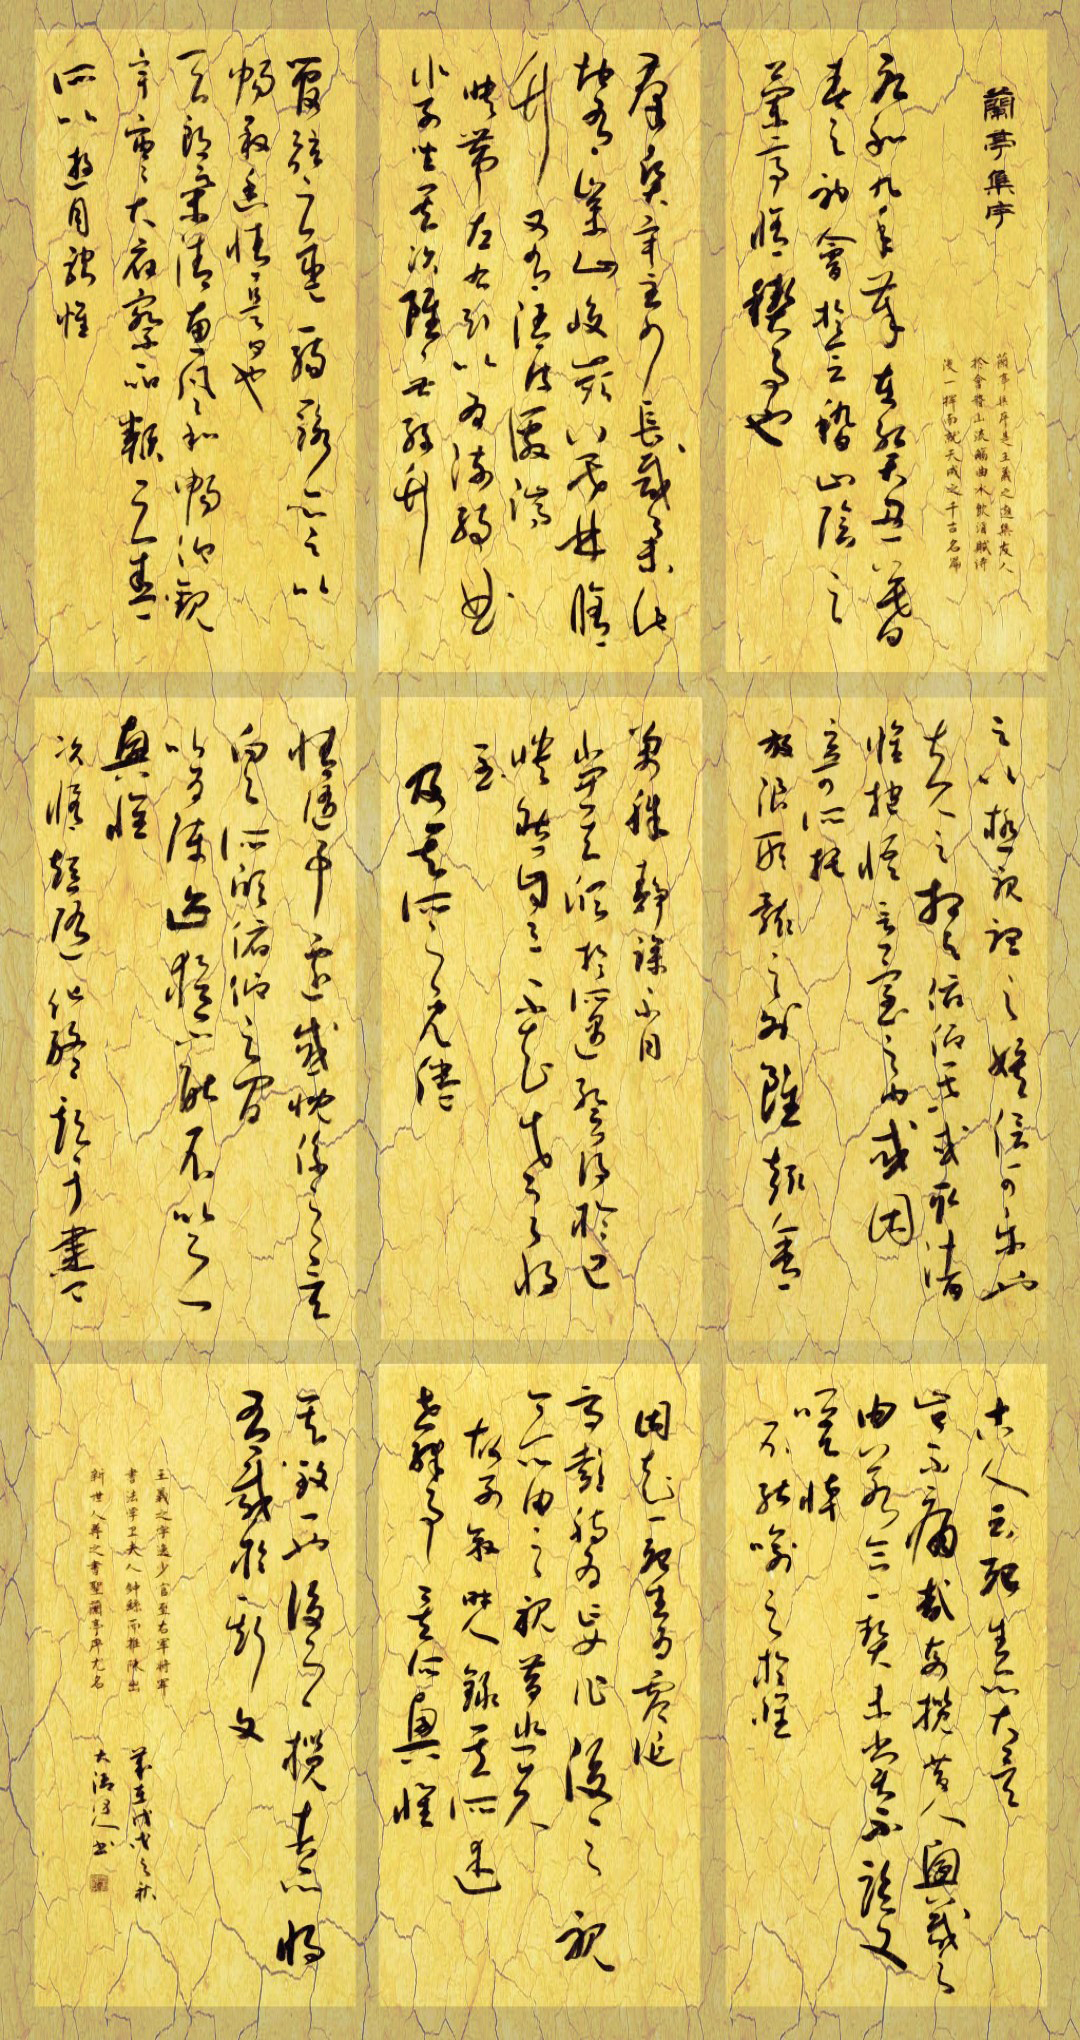 蘭亭集序
蘭亭集序是王羲之邀集友人
於會稽山流觴曲水飲酒賦詩
後一揮而就天成之千古名篇
永和九年歲在癸丑暮
春之初會於會稽山陰之
蘭亭脩禊事也
群賢畢至少長咸集此
地有崇山峻嶺茂林脩
竹又有清流激湍
映帶左右引以為流觴曲
水列坐其次雖無絲竹
管弦之盛一觴一詠亦足以
暢敘幽情是日也
天朗氣清惠風和暢仰觀
宇宙之大俯察品類之盛
所以遊目騁懷
之以極視聽之娛信可樂也
夫人之相與俯仰一世或取諸
懷抱悟言一室之內或因
寄所託
放浪形骸之外雖趣舍
萬殊靜躁不同
當其欣於所遇暫得於己
快然自足不知老之將
至
及其所之既倦
情隨事遷感慨係之矣
向之所欣俯仰之間
以為陳迹猶不能不以之
興懷
況脩短隨化終期于盡
古人云死生亦大矣
豈不痛哉每攬昔人興感之
由若合一契未嘗不臨文
嗟悼
不能喻之於懷
固知一死生為虛誕
齊彭殤為妄作後之視
今亦由今之視昔悲夫
故列敘時人錄其所述
世殊事異所以興懷
其致一也後之攬者亦將
有感於斯文
王羲之字逸少官至右軍將軍
書法學卫夫人鍾繇而推陳出
新世人尊之書聖蘭亭序尤名